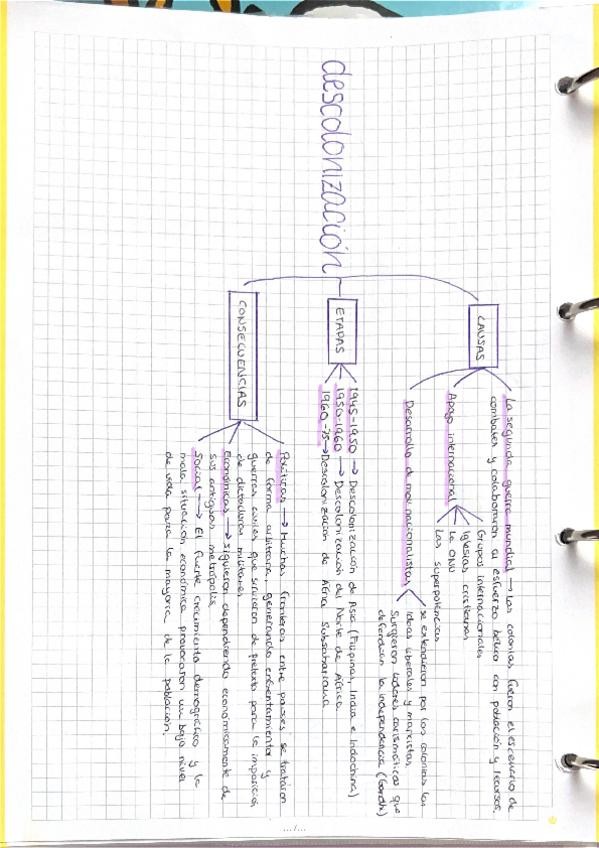 descolonización
CAUSAS
La segunda guerra mundial → Las colonias fueron el escenario de
combates y colaboraron al esfuerzo bélico con población y recursos.
Apoyo internacional
Grupos internacionales
Iglesias cristianas
La ONU
Las superpotencias
Desarrollo de mov nacionalistas
se extendieron por las colonias las
ideas liberales y marxistas
Surgieron líderes carismáticos que
defendían la independencia (Gandhi)
ETAPAS
1945-1950 → Descolonización de Asia (Filipinas, India e Indochina)
1950-1960 → Descolonización del Norte de África.
1960-75 → Descolonización de África Subsahariana
CONSECUENCIAS
Políticas → Muchas fronteras entre países se trataron
de forma arbitraria, generando enfrentamientos y
guerras civiles que sirvieron de pretexto para la imposición
de dictaduras militares
Económicas → siguieron dependiendo económicamente de
sus antiguas metrópolis
Social → El fuerte crecimiento demográfico y la
mala situación económica provocaron un bajo nivel
de vida para la mayoría de la población.
.../...